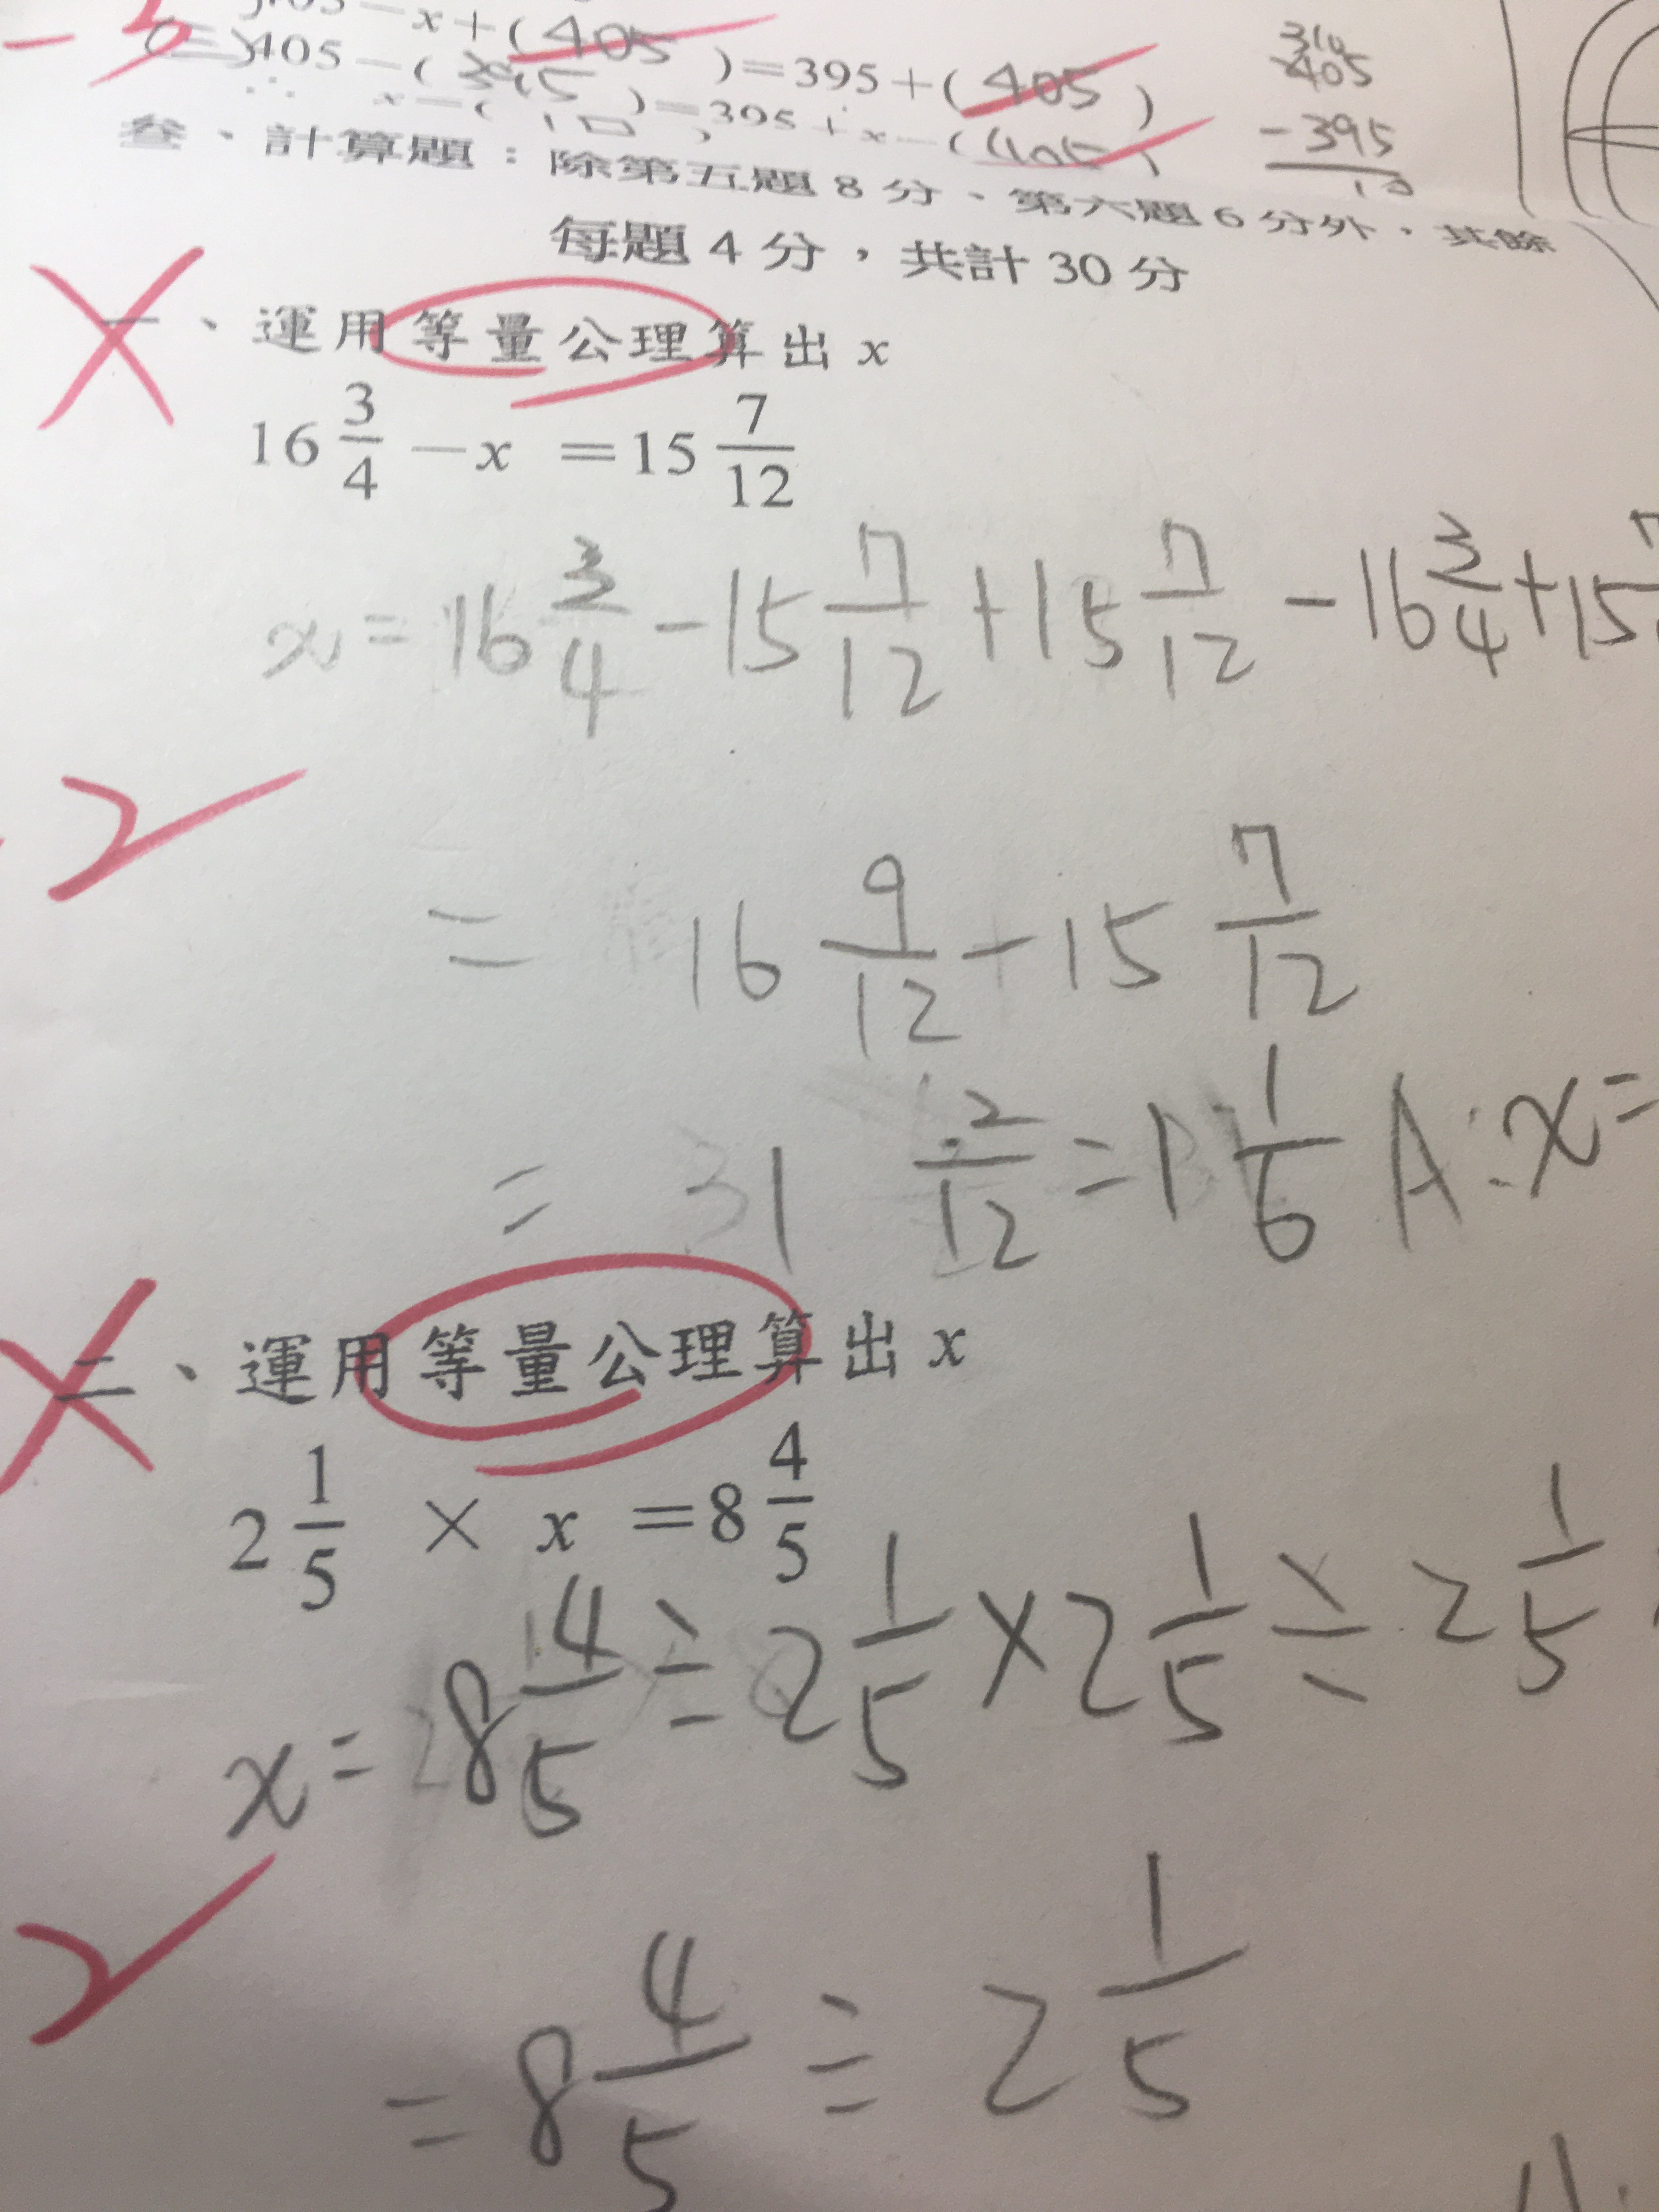 -3
- x + (405
(三) 405 - (395) = 395 + (405)
x - (10) = 395 + x - (405)
405
- 395
10
叁、計算題：除第五題 8 分、第六題 6 分外，其餘
每題 4 分，共計 30 分
一、運用等量公理算出 x
16 3/4 - x = 15 7/12
x = 16 3/4 - 15 7/12 + 15 7/12 - 16 3/4 + 15 7
2
= 16 9/12 - 15 7/12
= 1 2/12 = 1 1/6 A:x=
二、運用等量公理算出 x
2 1/5 × x = 8 4/5
x = 8 4/5 ÷ 2 1/5 × 2 1/5 ÷ 2 1/5
2
= 8 4/5 ÷ 2 1/5